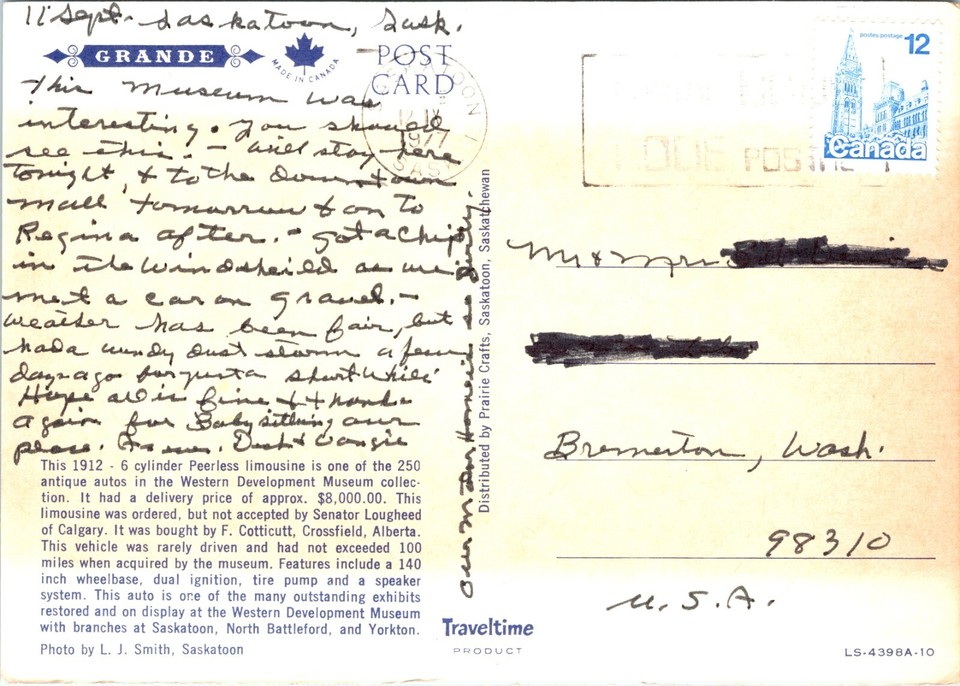 11 Sept. Saskatoon, Sask.
GRANDE
MADE IN CANADA
POST
CARD
This Museum was
interesting. You should
see this. - Will stay here
tonight, & to the downtown
mall tomorrow & on to
Regina after. - got a chip
in the windsheild as we
met a car on gravel. -
Weather has been fair, but
had a windy dust storm a few
days ago for just a short while
Hope all is fine & thanks
again for Babysitting our
place.
our Motor Home is so dirty.
This 1912 - 6 cylinder Peerless limousine is one of the 250
antique autos in the Western Development Museum collec-
tion. It had a delivery price of approx. $8,000.00. This
limousine was ordered, but not accepted by Senator Lougheed
of Calgary. It was bought by F. Cotticutt, Crossfield, Alberta.
This vehicle was rarely driven and had not exceeded 100
miles when acquired by the museum. Features include a 140
inch wheelbase, dual ignition, tire pump and a speaker
system. This auto is one of the many outstanding exhibits
restored and on display at the Western Development Museum
with branches at Saskatoon, North Battleford, and Yorkton.
Photo by L. J. Smith, Saskatoon
Distributed by Prairie Crafts, Saskatoon, Saskatchewan
Traveltime
PRODUCT
1977
postes postage 12
Canada
Mr & Mrs
Bremerton, Wash.
98310
U.S.A.
LS-4398A-10